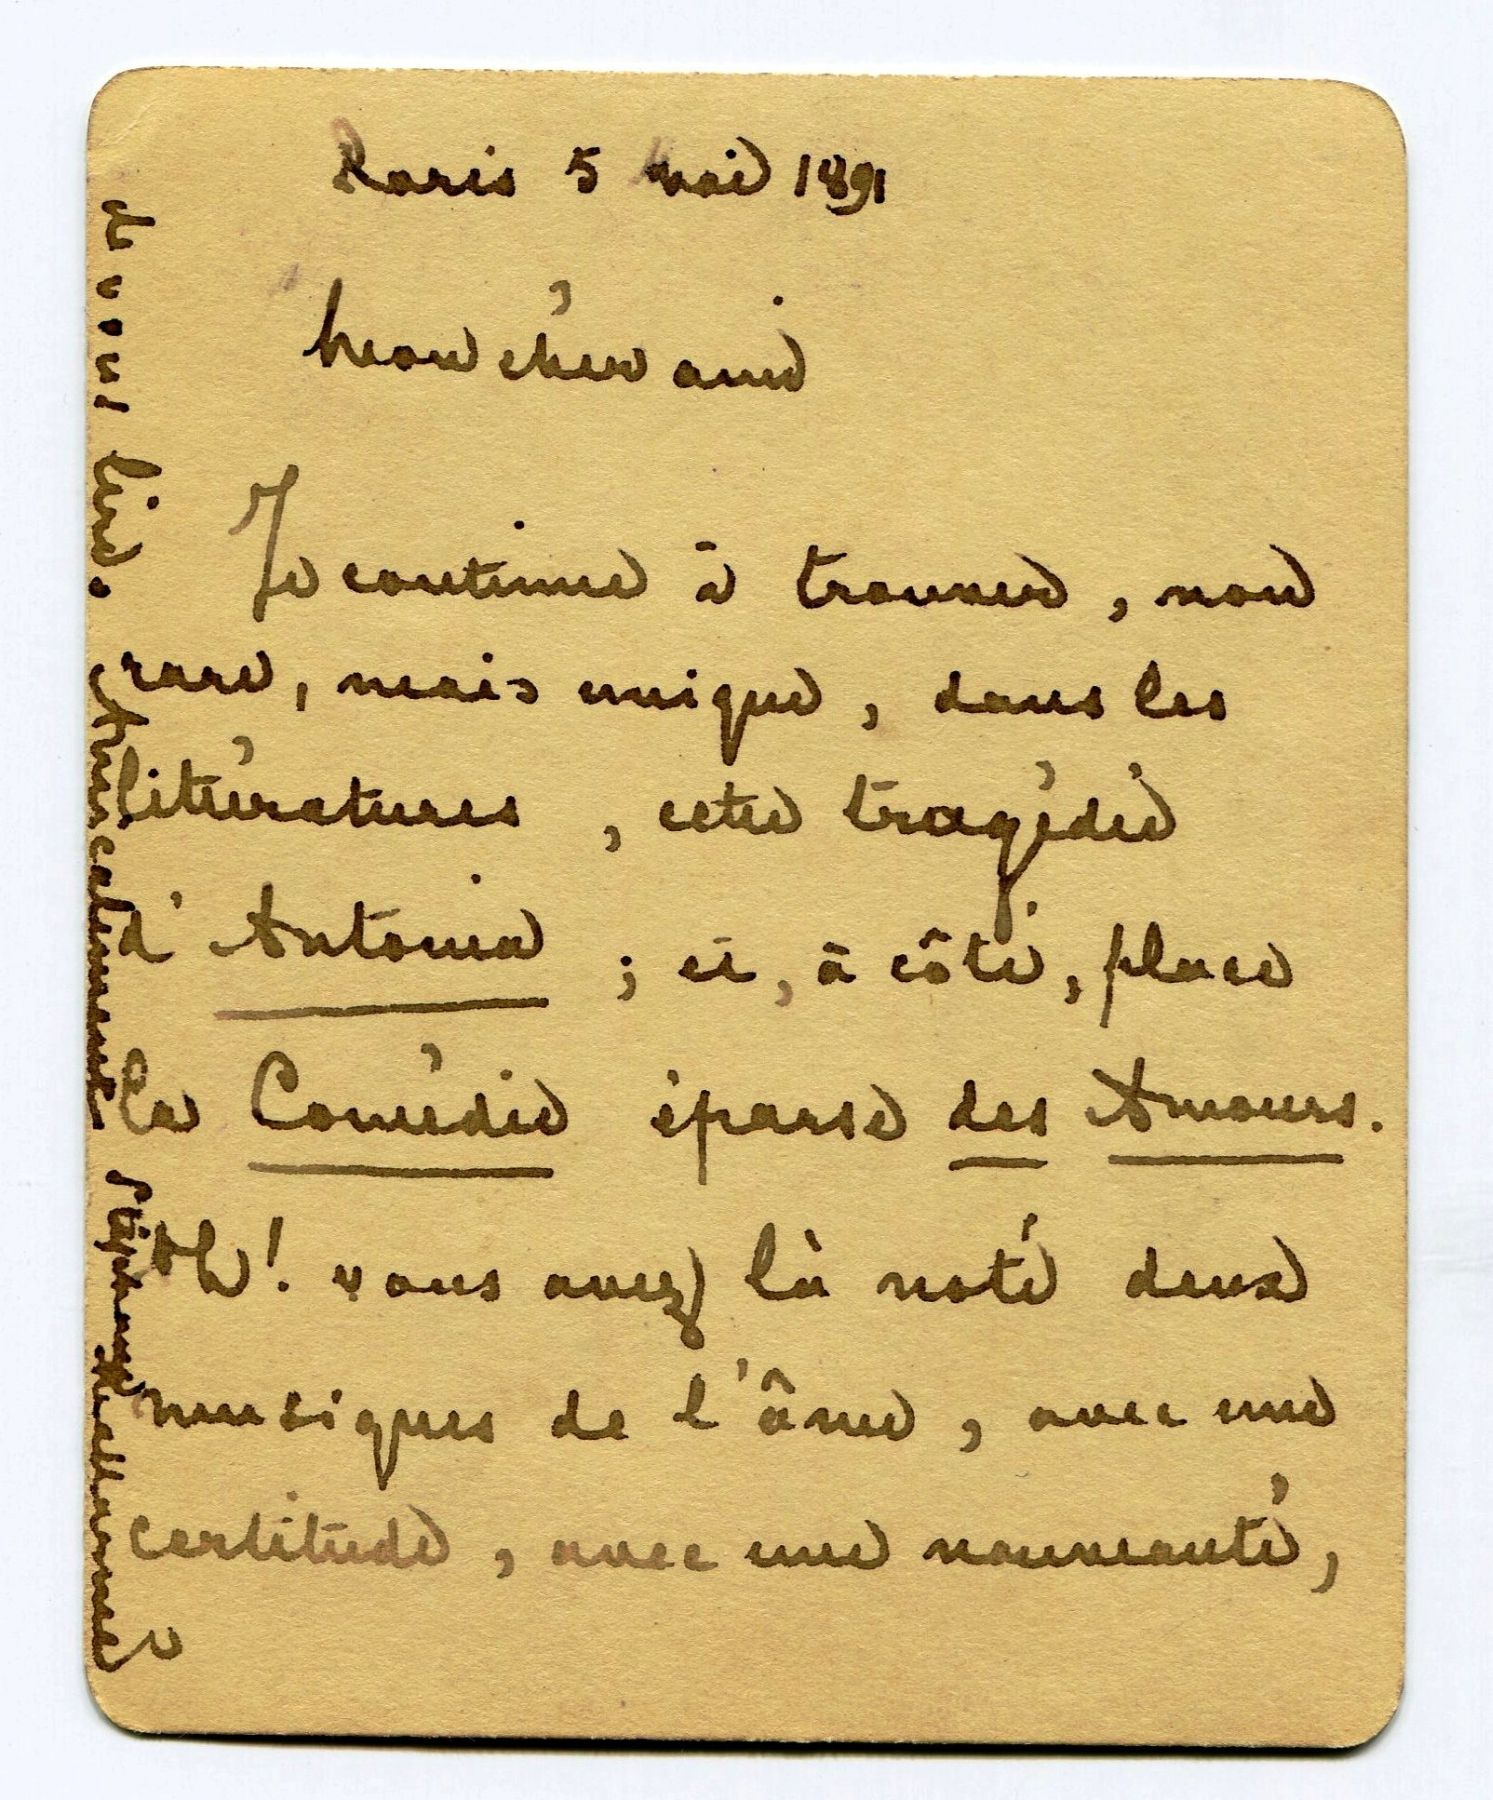 Paris 5 mai 1891
Mon cher ami
Je continue à trouver, non
rare, mais unique, dans les
littératures, cette tragédie
d'Antonia ; et, à côté, place
la Comédie éparse des Amours.
Ah! vous avez là noté deux
musiques de l'âme, avec une
certitude, avec une nouveauté,
de vous lire. Amicalement Stéphane Mallarmé